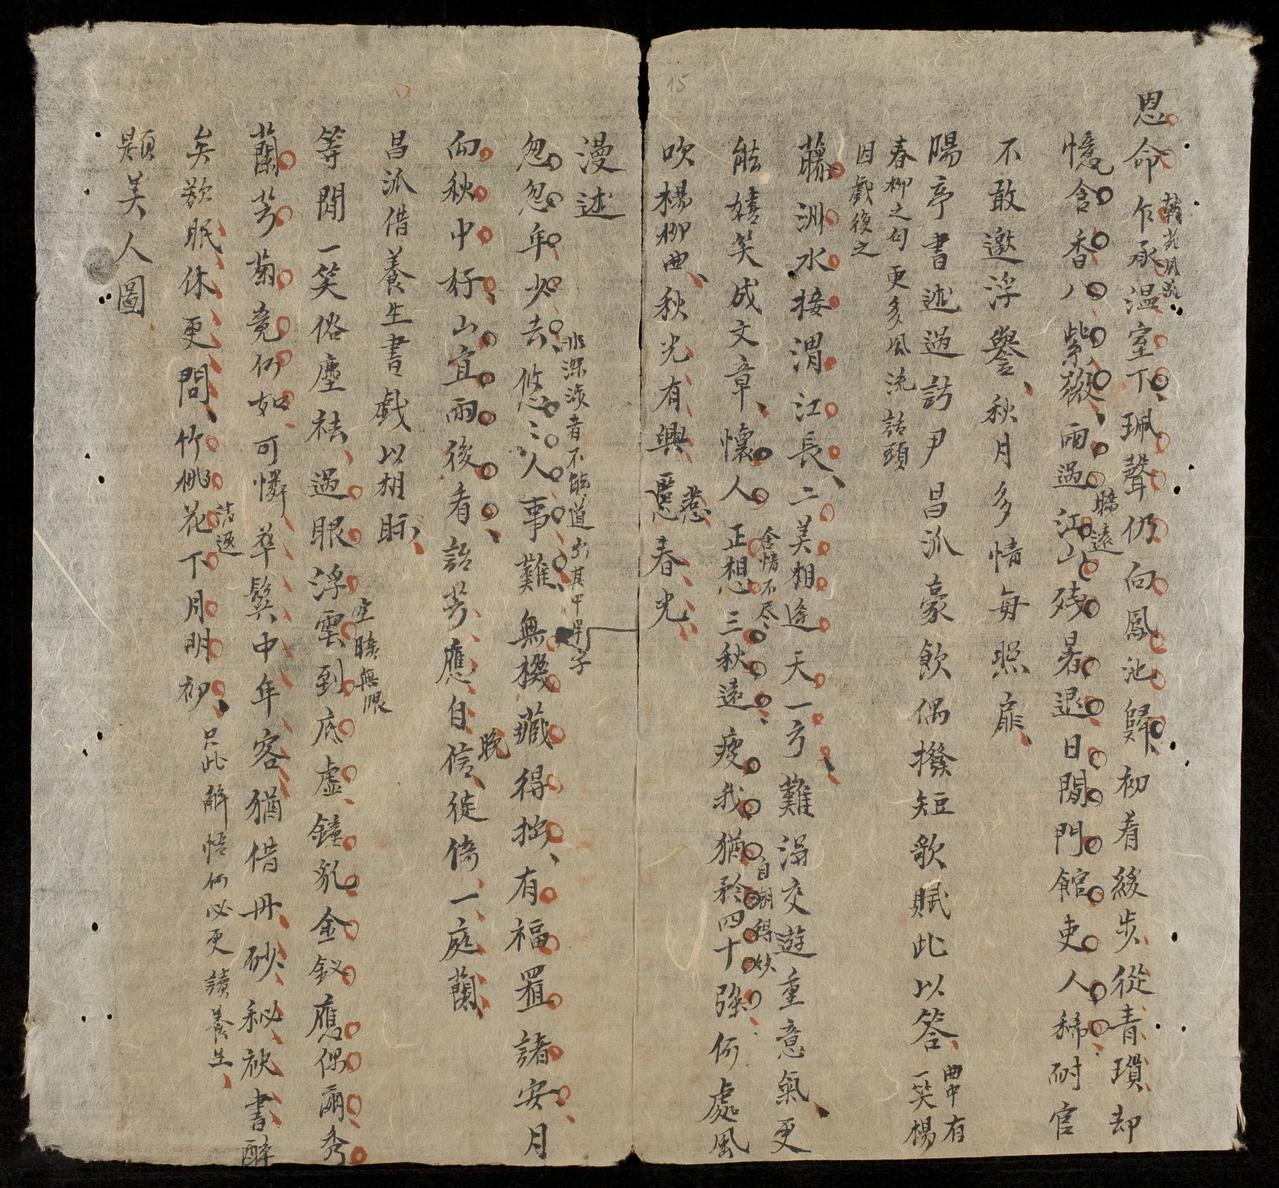 恩命乍承溫室下珮聲仍向鳳池歸初着緩步從青瑣却
憶含香八紫薇雨過江山殘暑退日閒門館吏人稀耐官
曠遠
不敢邀浮譽秋月多情每照扉
陽亭書述過訪尹昌派豪飲偶撥短歌賦此以答
曲中有一笑楊
春柳之句更多風流話頭
因戲復之
藤洲水接渭江長二美相逢天一方難得交遊重意氣更
能嬉笑成文章懷人正想三秋遠瘦我猶矜四十強何處風
含情不尽
自嘲得妙
吹楊柳曲秋光有興惹春光
漫述
忽忽年少去悠悠人事難無機藏得拙有福置諸安月
非深涉者不能道
向秋中好山宜雨後看語芳應自信徒倚一庭蘭
晚
昌派借養生書戲以相眎
等閒一笑俗塵祛過眼浮雲到底虛鐘 金釵應偶爾秀
空曠無限
蘭芳菊竟何如可憐華鬢中年客猶借丹砂秘 書醉
矣欲眠休更問竹桃花下月明初
活逐
只此解悟何必更讀養生
題美人圖
15